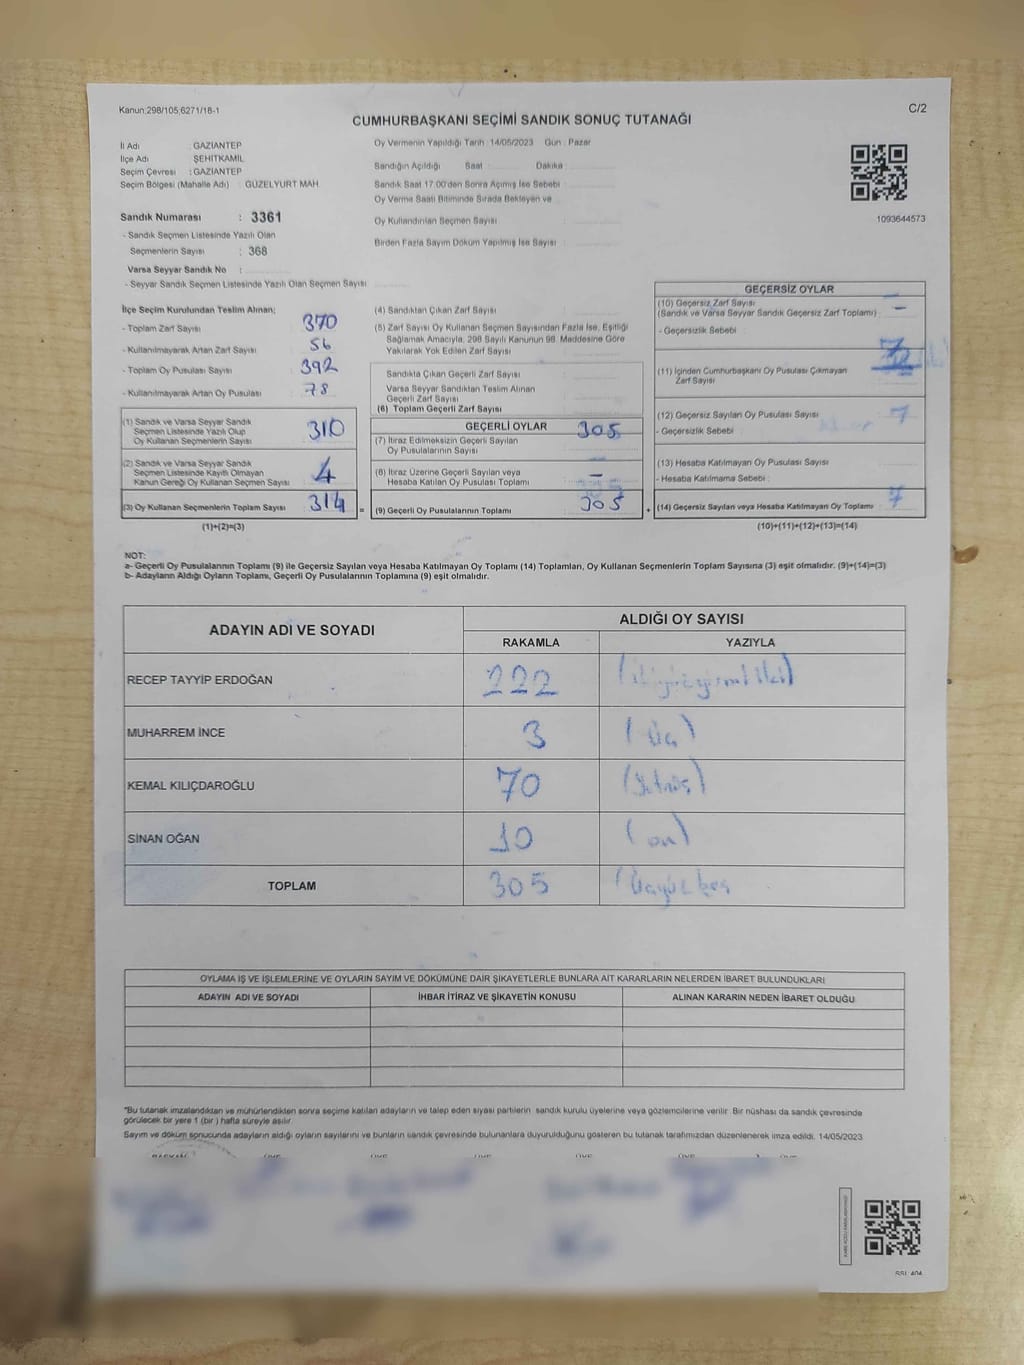 Kanun:298/105;6271/18-1
C/2
CUMHURBAŞKANI SEÇİMİ SANDIK SONUÇ TUTANAĞI
İl Adı : GAZİANTEP
İlçe Adı ŞEHİTKAMİL
Seçim Çevresi : GAZİANTEP
Seçim Bölgesi (Mahalle Adı) : GÜZELYURT MAH.
Oy Vermenin Yapıldığı Tarih :14/05/2023 Gün : Pazar
Sandığın Açıldığı Saat Dakika
Sandık Saat 17:00'den Sonra Açımış İse Sebebi :
Oy Verma Saati Bitiminde Sırada Bekleyen ve
Oy Kullandırılan Seçmen Sayısı
Birden Fazla Sayım Döküm Yapılmış İse Sayısı :
1093644573
Sandık Numarası : 3361
- Sandık Seçmen Listesinde Yazılı Olan
Seçmenlerin Sayısı : 368
Varsa Seyyar Sandık No :
- Seyyar Sandık Seçmen Listesinde Yazılı Olan Seçmen Sayısı
İlçe Seçim Kurulundan Teslim Alınan;
- Toplam Zarf Sayısı 370
- Kullanılmayarak Artan Zarf Sayısı 56
- Toplam Oy Pusulası Sayısı 392
- Kullanılmayarak Artan Oy Pusulası 78
(1) Sandık ve Varsa Seyyar Sandık
Seçmen Listesinde Yazılı Olup
Oy Kullanan Seçmenlerin Sayısı 310
(2) Sandık ve Varsa Seyyar Sandık
Seçmen Listesinde Kayıtlı Olmayan
Kanun Gereği Oy Kullanan Seçmen Sayısı 4
(3) Oy Kullanan Seçmenlerin Toplam Sayısı 314
(1)+(2)=(3)
(4) Sandıktan Çıkan Zarf Sayısı
(5) Zarf Sayısı Oy Kullanan Seçmen Sayısından Fazla İse, Eşitliği
Sağlamak Amacıyla, 298 Sayılı Kanunun 98. Maddesine Göre
Yakılarak Yok Edilen Zarf Sayısı
Sandıkta Çıkan Geçerli Zarf Sayısı
Varsa Seyyar Sandıktan Teslim Alınan
Geçerli Zarf Sayısı
(6) Toplam Geçerli Zarf Sayısı
=
GEÇERLİ OYLAR
(7) İtiraz Edilmeksizin Geçerli Sayılan
Oy Pusulalarının Sayısı 305
(8) İtiraz Üzerine Geçerli Sayılan veya
Hesaba Katılan Oy Pusulası Toplamı –
(9) Geçerli Oy Pusulalarının Toplamı 305
+
GEÇERSİZ OYLAR
(10) Geçersiz Zarf Sayısı –
(Sandık ve Varsa Seyyar Sandık Geçersiz Zarf Toplamı) –
- Geçersizlik Sebebi
(11) İçinden Cumhurbaşkanı Oy Pusulası Çıkmayan
Zarf Sayısı
(12) Geçersiz Sayılan Oy Pusulası Sayısı 7
- Geçersizlik Sebebi
(13) Hesaba Katılmayan Oy Pusulası Sayısı
- Hesaba Katılmama Sebebi :
(14) Geçersiz Sayılan veya Hesaba Katılmayan Oy Toplamı 7
(10)+(11)+(12)+(13)=(14)
NOT:
a- Geçerli Oy Pusulalarının Toplamı (9) ile Geçersiz Sayılan veya Hesaba Katılmayan Oy Toplamı (14) Toplamları, Oy Kullanan Seçmenlerin Toplam Sayısına (3) eşit olmalıdır. (9)+(14)=(3)
b- Adayların Aldığı Oyların Toplamı, Geçerli Oy Pusulalarının Toplamına (9) eşit olmalıdır.
ADAYIN ADI VE SOYADI ALDIĞI OY SAYISI
RAKAMLA YAZIYLA
RECEP TAYYİP ERDOĞAN 222
MUHARREM İNCE 3 (üç)
KEMAL KILIÇDAROĞLU 70 (yetmiş)
SİNAN OĞAN 10 (on)
TOPLAM 305 (Üçyüz beş
OYLAMA İŞ VE İŞLEMLERİNE VE OYLARIN SAYIM VE DÖKÜMÜNE DAİR ŞİKAYETLERLE BUNLARA AİT KARARLARIN NELERDEN İBARET BULUNDUKLARI
ADAYIN ADI VE SOYADI İHBAR İTİRAZ VE ŞİKAYETİN KONUSU ALINAN KARARIN NEDEN İBARET OLDUĞU
*Bu tutanak imzalandıktan ve mühürlendikten sonra seçime katılan adayların ve talep eden siyasi partilerin sandık kurulu üyelerine veya gözlemcilerine verilir. Bir nüshası da sandık çevresinde
görülecek bir yere 1 (bir ) hafta süreyle asılır.
Sayım ve döküm sonucunda adayların aldığı oyların sayılarını ve bunların sandık çevresinde bulunanlara duyurulduğunu gösteren bu tutanak tarafımızdan düzenlenerek imza edildi. 14/05/2023